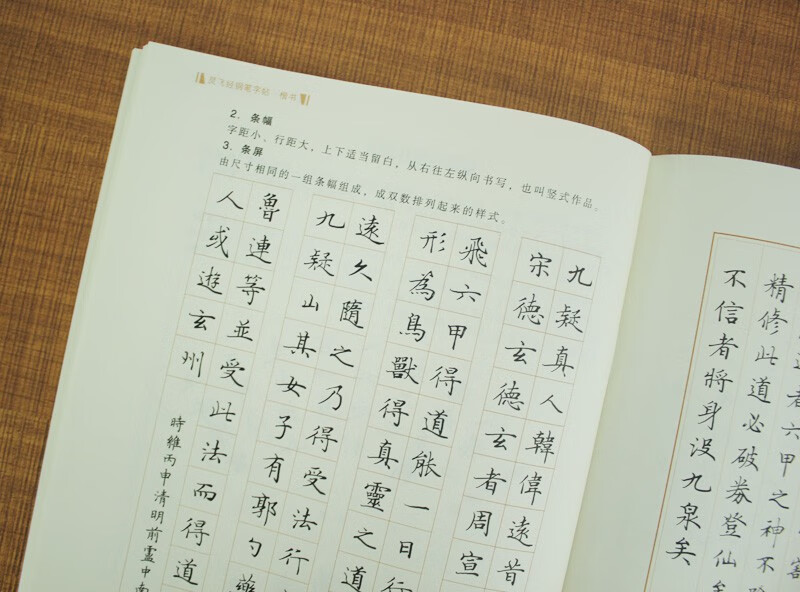 灵飞经钢笔字帖·楷书
2. 条幅
字距小、行距大，上下适当留白，从右往左纵向书写，也叫竖式作品。
3. 条屏
由尺寸相同的一组条幅组成，成双数排列起来的样式。
九疑真人韓偉遠昔
宋德玄德玄者周宣
飛六甲得道能一日行
形為鳥獸得真靈之道
遠久隨之乃得受法行
九疑山其女子有郭勺藥
魯連等並受此法而得道
人或遊玄州
時維丙申清明前
者六甲之神不
精修此道必破券登仙矣
不信者將身沒九泉矣